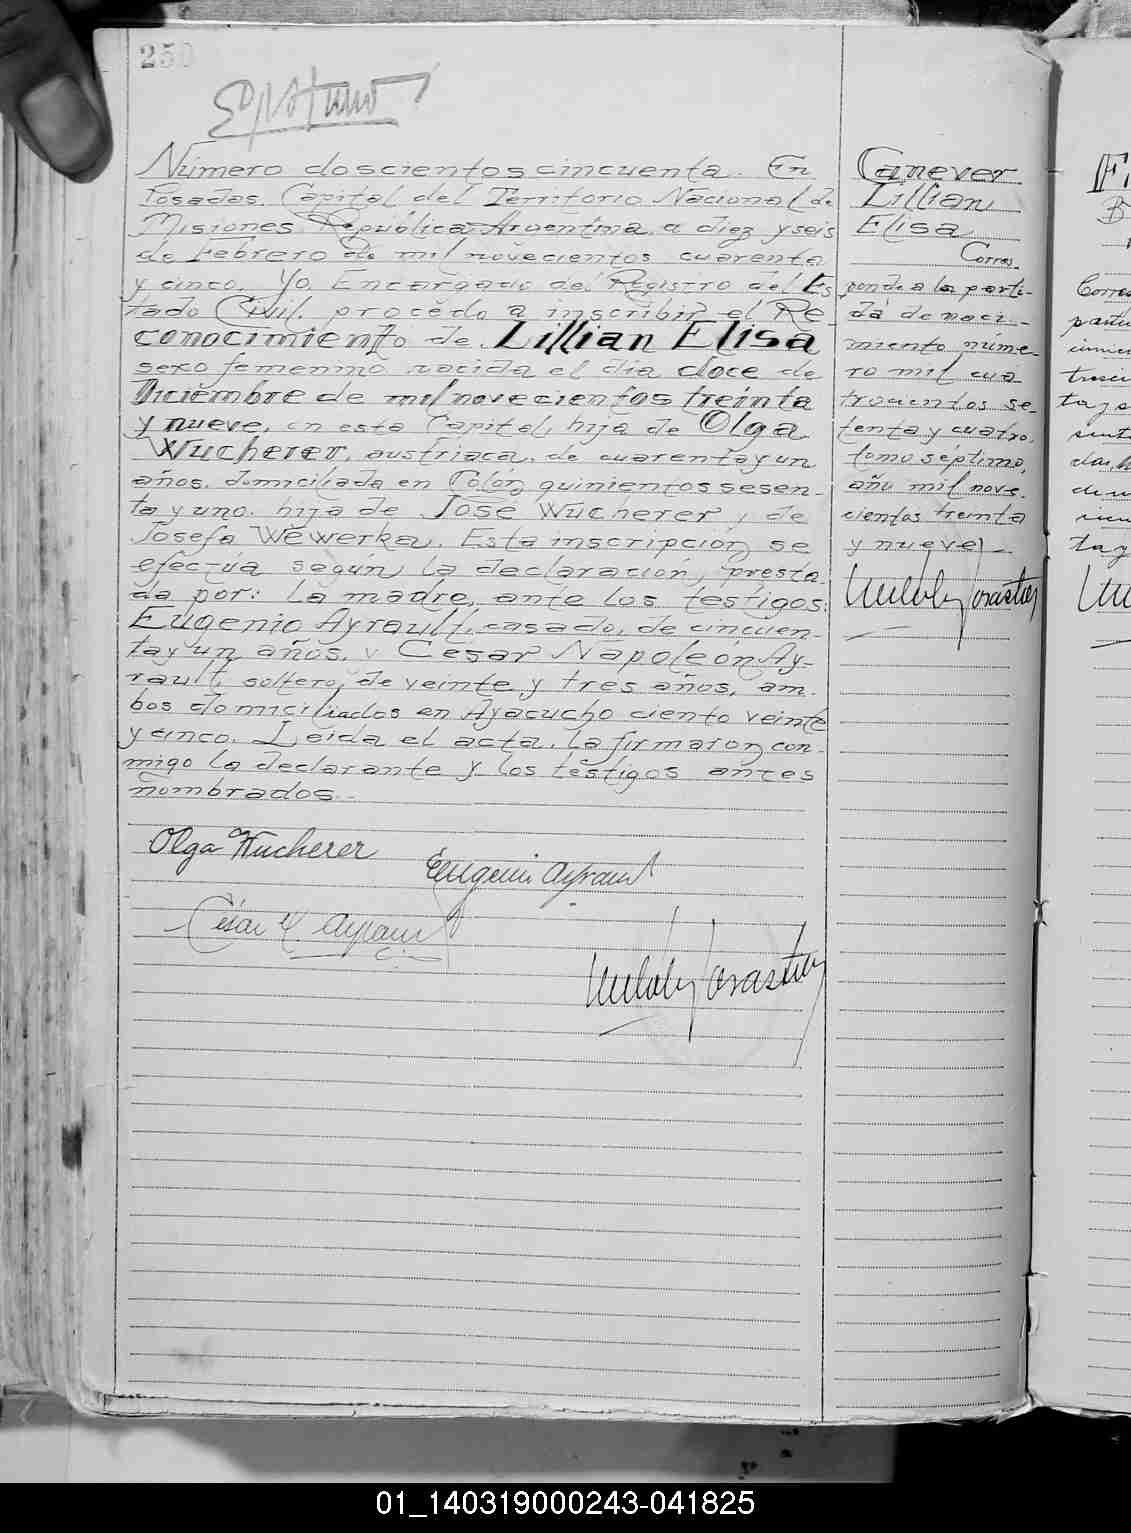 250
Número doscientos cincuenta. En
Posadas, Capital del Territorio Nacional de
Misiones, República Argentina, a diez y seis
de Febrero de mil novecientos cuarenta
y cinco. Yo, Encargado del Registro del Es
tado Civil, procedo a inscribir el Re-
conocimiento de Lillian Elisa
sexo femenino nacida el día doce de
Diciembre de mil novecientos treinta
y nueve, en esta Capital, hija de Olga
Wucherer, austriaca, de cuarenta y un
años, domiciliada en Colón quinientos sesen-
ta y uno. hija de José Wucherer y de
Josefa Wewerka. Esta inscripción se
efectúa según la declaración, presta
da por: la madre, ante los testigos:
Eugenio Ayrault, casado, de cincuen-
ta y un años, y César Napoleón Ay-
rault, soltero, de veinte y tres años, am-
bos domiciliados en Ayacucho ciento veinte
y cinco. Leída el acta, la firmaron con-
migo la declarante y los testigos antes
nombrados.-
Olga Wucherer
Eugenio Ayrault
César N. Ayrault
Canever
Lillian
Elisa
Corres-
ponde a la parti-
da de naci-
miento núme-
ro mil cua
trocientos se-
tenta y cuatro,
tomo séptimo,
año mil nove-
cientos treinta
y nueve.-
01_140319000243-041825